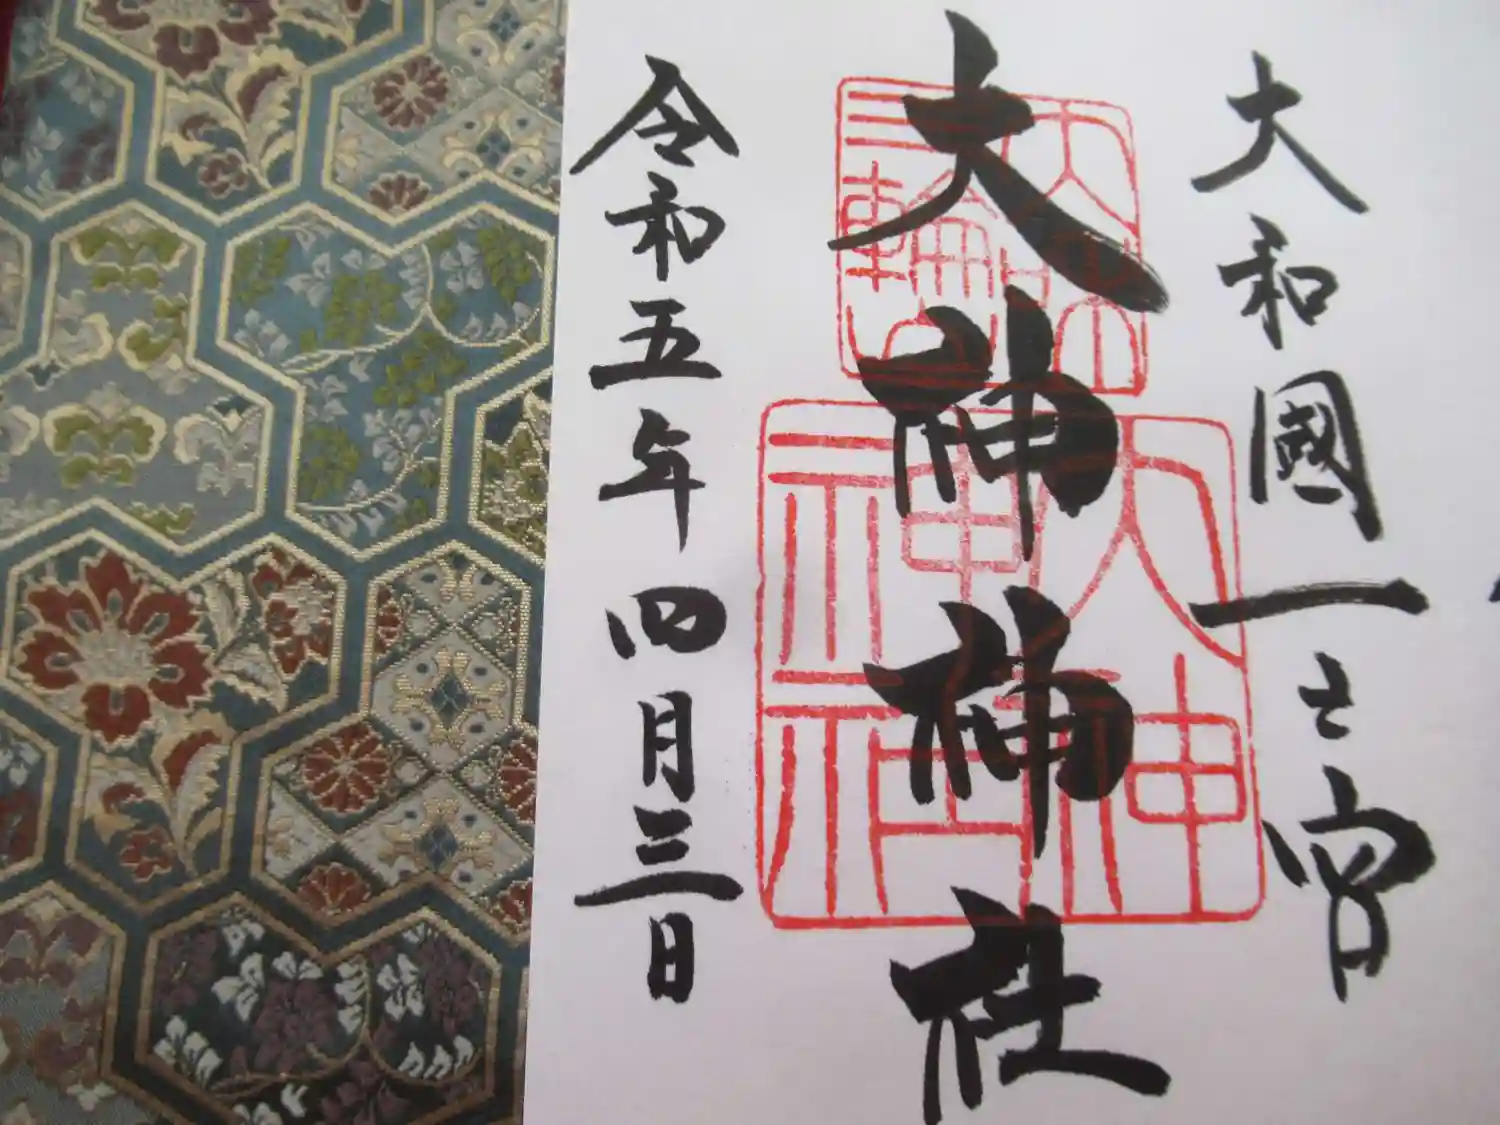 大和國一之宮
大神神社
令和五年四月三日
三輪
大神神社